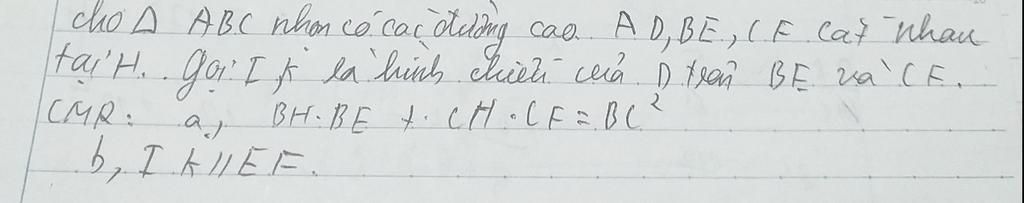 cho Δ ABC nhọn có các đường cao AD, BE, CF cắt nhau
tại H. Gọi I, K là hình chiếu của D trên BE và CF.
CMR: a, BH.BE + CH.CF = BC²
b, IK // EF.